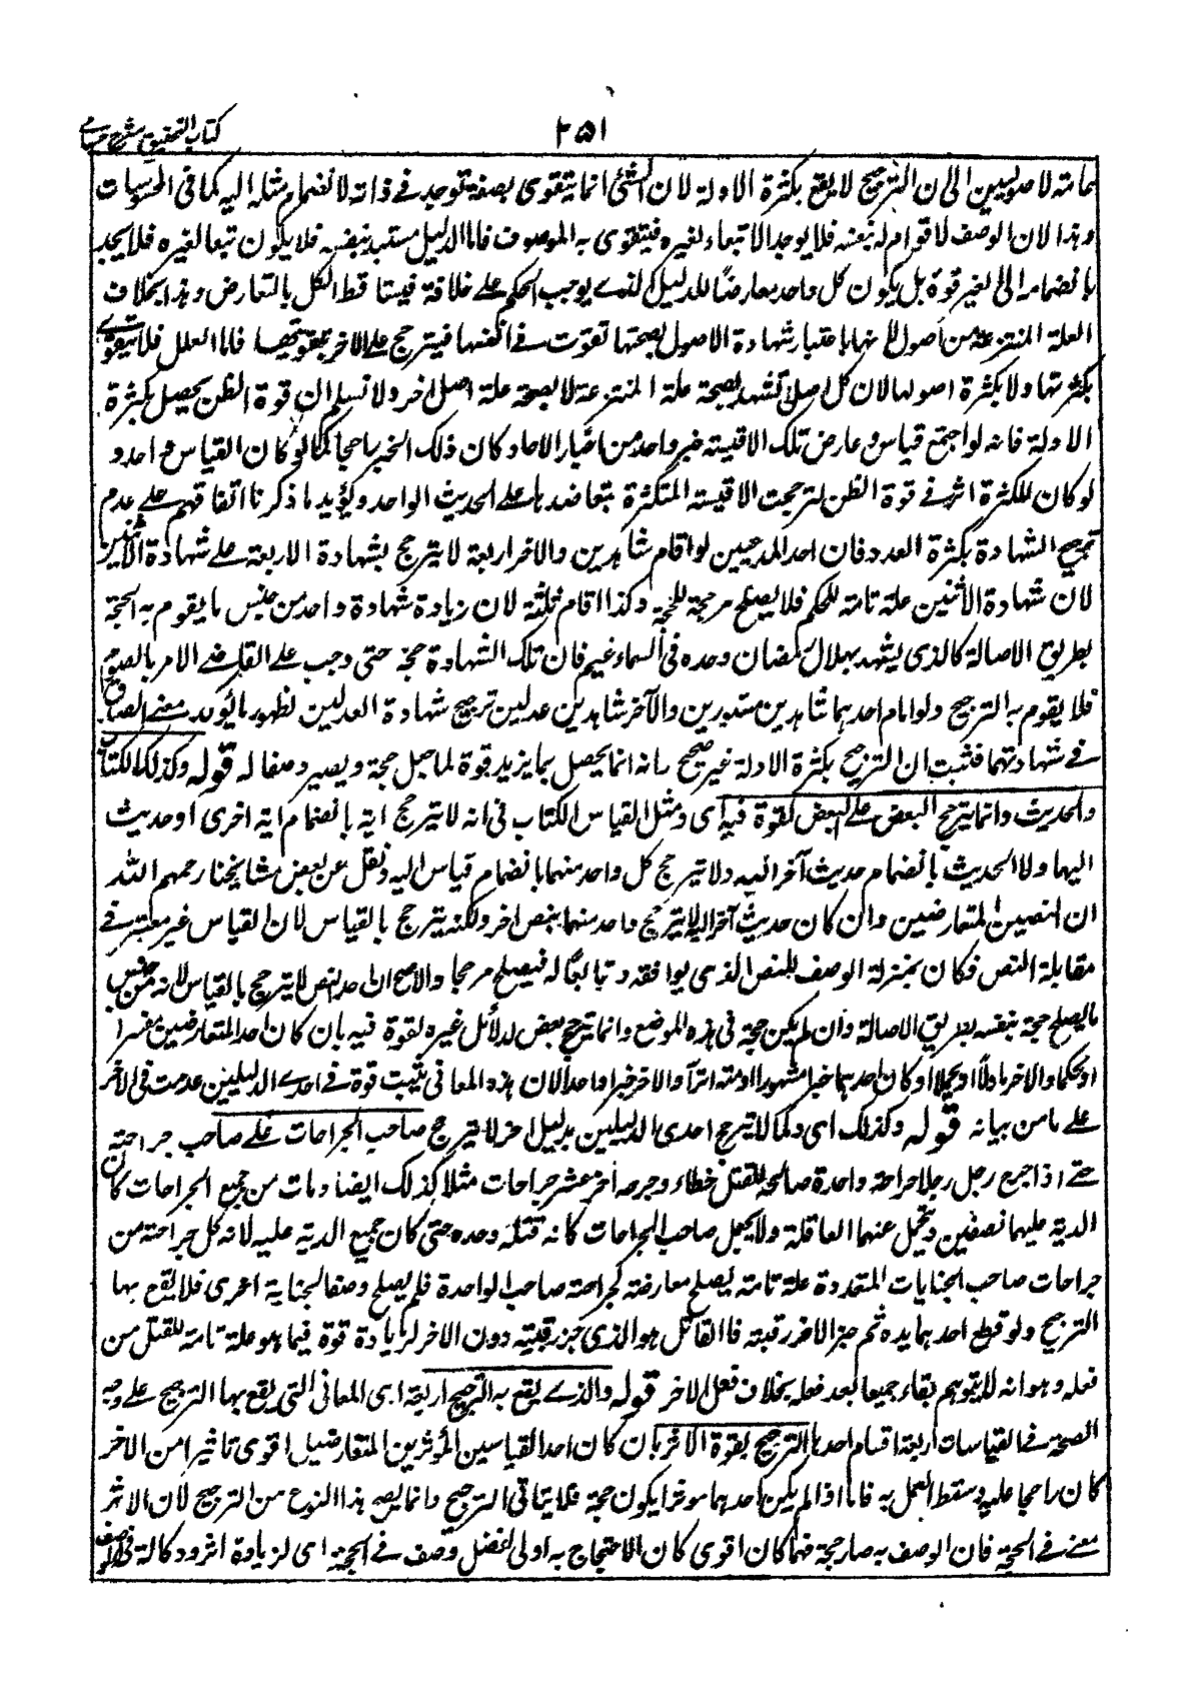 ٢٥١
كتاب التحقيق شرح حسامي
عامة الاصوليين الى ان الترجيح لا يقع بكثرة الادلة لان الشئ انما يتقوى بصفة توجد في ذاته لا بانضمام مثله اليه كما في المحسوسات
وهذا لان الوصف لا قوام له بنفسه فلا يوجد الا تبعا لغيره فيتقوى به الموصوف فاما الدليل مستبد بنفسه فلا يكون تبعا لغيره فلا يجد
بانضمامه الى الغير قوة بل يكون كل واحد معارضًا للدليل الذي يوجب الحكم على خلافه فيتساقط الكل بالتعارض وهذا بخلاف
العلة المنتزعة من اصول لانها باعتبار شهادة الاصول بصحتها تقوت في انفسها فيترجح على الاخر بقوتها فاما العلل فلا يتقوى
بكثرتها ولا بكثرة اصولها لان كل اصل تشهد بصحة علة المنتزعة لا بصحة علة اصل اخر ولا نسلم ان قوة الظن يحصل بكثرة
الادلة فانه لو اجتمع قياس وعارض تلك الاقيسة خبر واحد من اخبار الاحاد كان ذلك الخبر راجحا كما لو كان القياس واحدو
لو كان للكثرة اثر في قوة الظن لترجحت الاقيسة المتكثرة بتعاضدها على الحديث الواحد ويؤيد ما ذكرنا اتفاقهم على عدم
ترجيح الشهادة بكثرة العدد فان احد المدعيين لو اقام شاهدين والاخر اربعة لا يترجح شهادة الاربعة على شهادة الاثنين
لان شهادة الاثنين علة تامة للحكم فلا يصلح مرجحة للحجة وكذا اقام ثلثة لان زيادة شهادة واحد من جنس ما يقوم به الحجة
بطريق الاصالة كالذى يشهد بهلال رمضان وحده فى السماء غيم فان تلك الشهادة حجة حتى وجب على القاضي الامر بالصوم
فلا يقوم به الترجيح ولو اقام احدهما شاهدين مستورين والآخر شاهدين عدلين ترجح شهادة العدلين لظهور ما يؤكد معنى الصدق
في شهادتهما فثبت ان الترجيح بكثرة الادلة غير صحيح وانه انما يحصل بما يزيد قوة لما جعل حجة ويصير وصفا له قوله وكذلك الكتاب
والحديث وانما يترجح البعض على البعض لقوة فيه اى ومثل القياس الكتاب فى انه لا يترجح اية بانضمام اية اخرى او حديث
اليها ولا الحديث بانضمام حديث آخر اليه ولا يترجح كل واحد منهما بانضمام قياس اليه ونقل عن بعض مشايخنا رحمهم الله
ان النصين المتعارضين وان كان حديث آخر لا يترجح واحد منهما بنص اخر ولكنه يترجح بالقياس لان القياس غير معتبر في
مقابلة النص فكان بمنزلة الوصف للنص الذى يوافقه وتابعًا له فيصلح مرجحا والاصح ان احد النص لا يترجح بالقياس لانه من جنس
ما يصلح حجة بنفسه بطريق الاصالة وان لم يكن حجة فى هذه الموضع وانما يترجح بعض الدلائل غيره لقوة فيه بان كان احد المتعارضين مفسرا
او محكما والاخر ماولًا او مجملا او كان احدهما خبرا مشهورا او متواترا والاخر خبرا واحدا لان هذه المعانى يثبت قوة في احدى الدليلين عدمت فى الاخر
على ما من بيانه قوله وكذلك اى وكما لا يترجح احدى الدليلين بدليل اخر لا يترجح صاحب الجراحات على صاحب جراحة
حتى اذا جرح رجل رجلا جراحة واحدة صالحة للقتل خطاء وجرحه اخر عشر جراحات مثلا كذلك ايضا ومات من جميع الجراحات كان
الدية عليهما نصفين ويتحمل عنهما العاقلة ولا يجعل صاحب الجراحات كانه قتله وحده حتى كان جميع الدية عليه لانه كل جراحة من
جراحات صاحب الجنايات المتعددة علة تامة يصلح معارضة لجراحة صاحب الواحدة فلم يصلح وصفا لجناية اخرى فلا يقع بها
الترجيح ولو قطع احدهما يده ثم حز الاخر رقبته فالقاتل هو الذى حز رقبته دون الاخر لزيادة قوة فيما هو علة تامة للقتل من
فعله وهو انه لا يتوهم بقاءه حيا بعد فعله بخلاف فعل الاخر قوله والذي يقع به الترجيح اربعة اى المعانى التى يقع بها الترجيح على وجه
الصحة في القياسات اربعة اقسام احدها الترجيح بقوة الاثر بان كان احد القياسين المؤثرين المتعارضين اقوى تاثيرا من الاخر
كان راجحا عليه وسقط العمل به فاما اذا لم يكن احدهما موثرا يكون حجة فلا يتاتى الترجيح وانما يصح هذا النوع من الترجيح لان الاثر
معنى في الحجة فان الوصف به صار حجة فمهما كان اقوى كان الاحتجاج به اولى لفضل وصف في الحجة اى لزيادة اثر وكالة فى الوصف